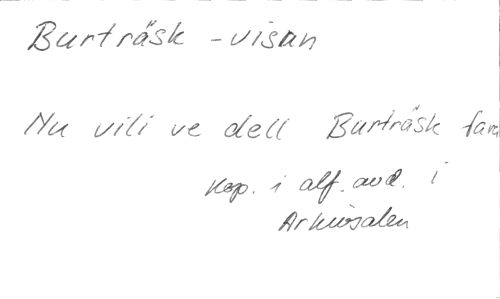 Burträsk - visan
Nu vili ve dell Burträsk fara
Kop. i alf. avd. i
Arkivsalen